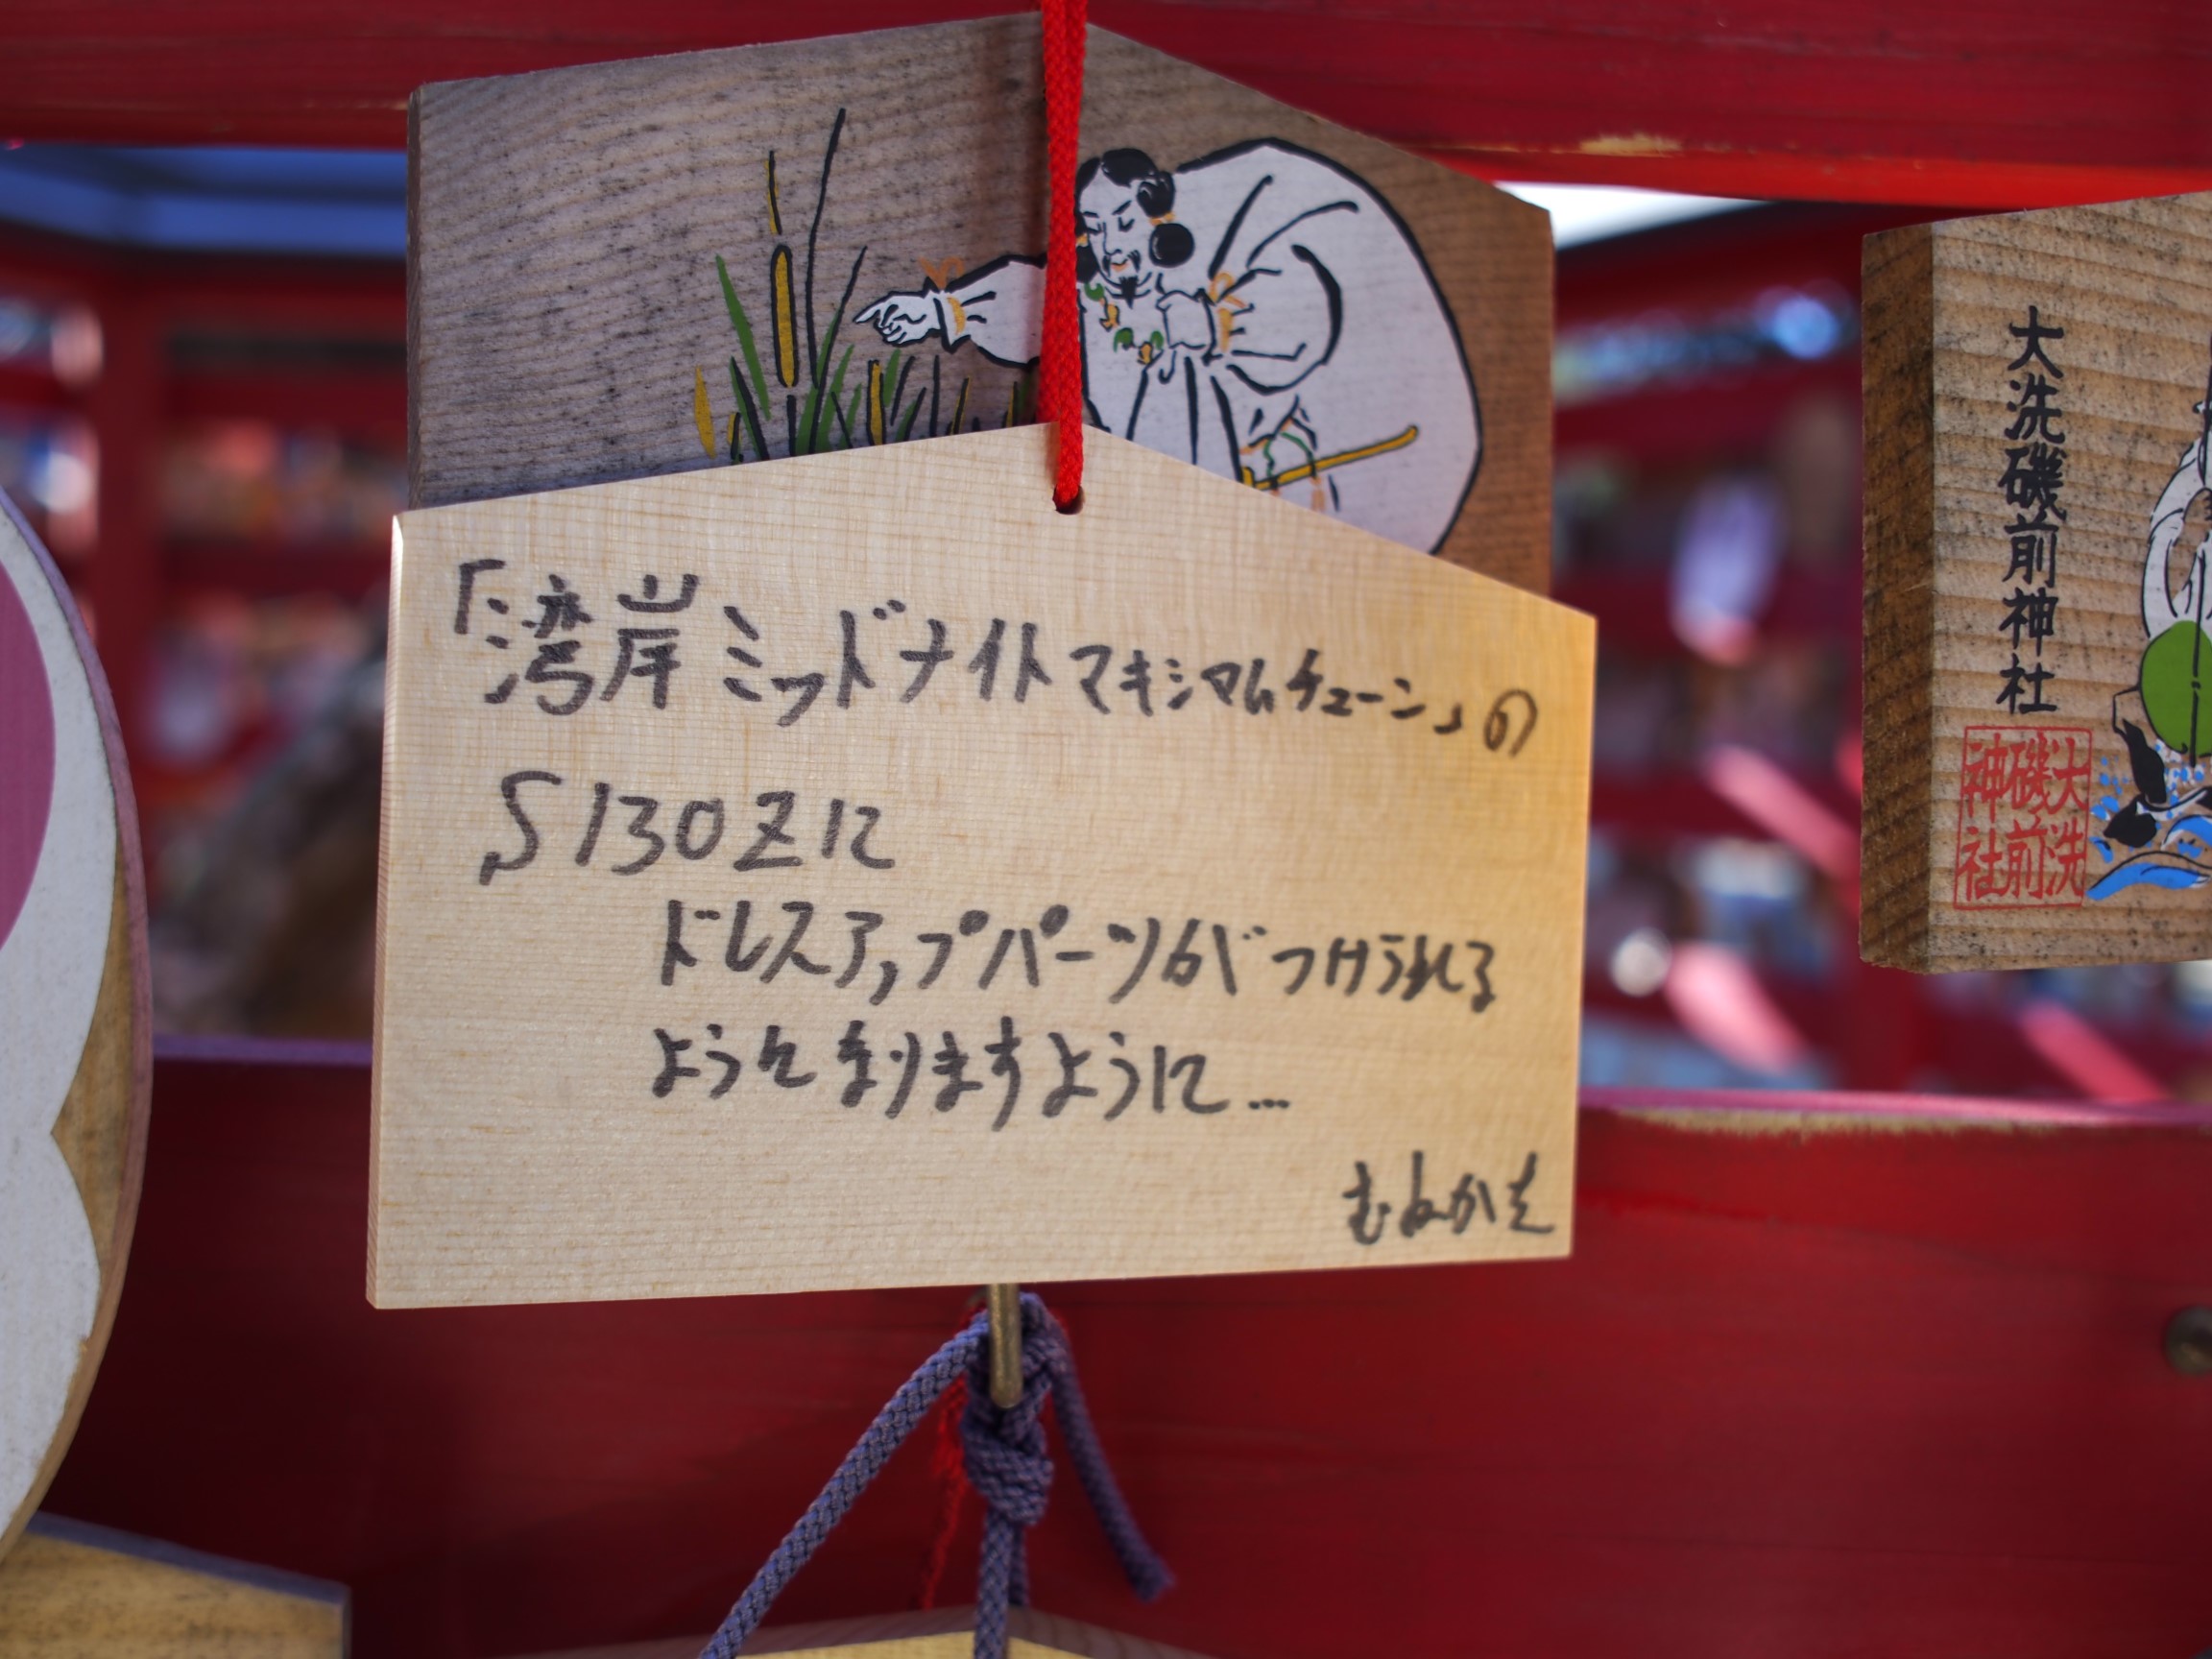 「湾岸ミッドナイトマキシマムチューン」の
S130Zに
ドレスアップパーツがつけられる
ようになりますように…
むねかた
大洗磯前神社
大洗
磯前
神社